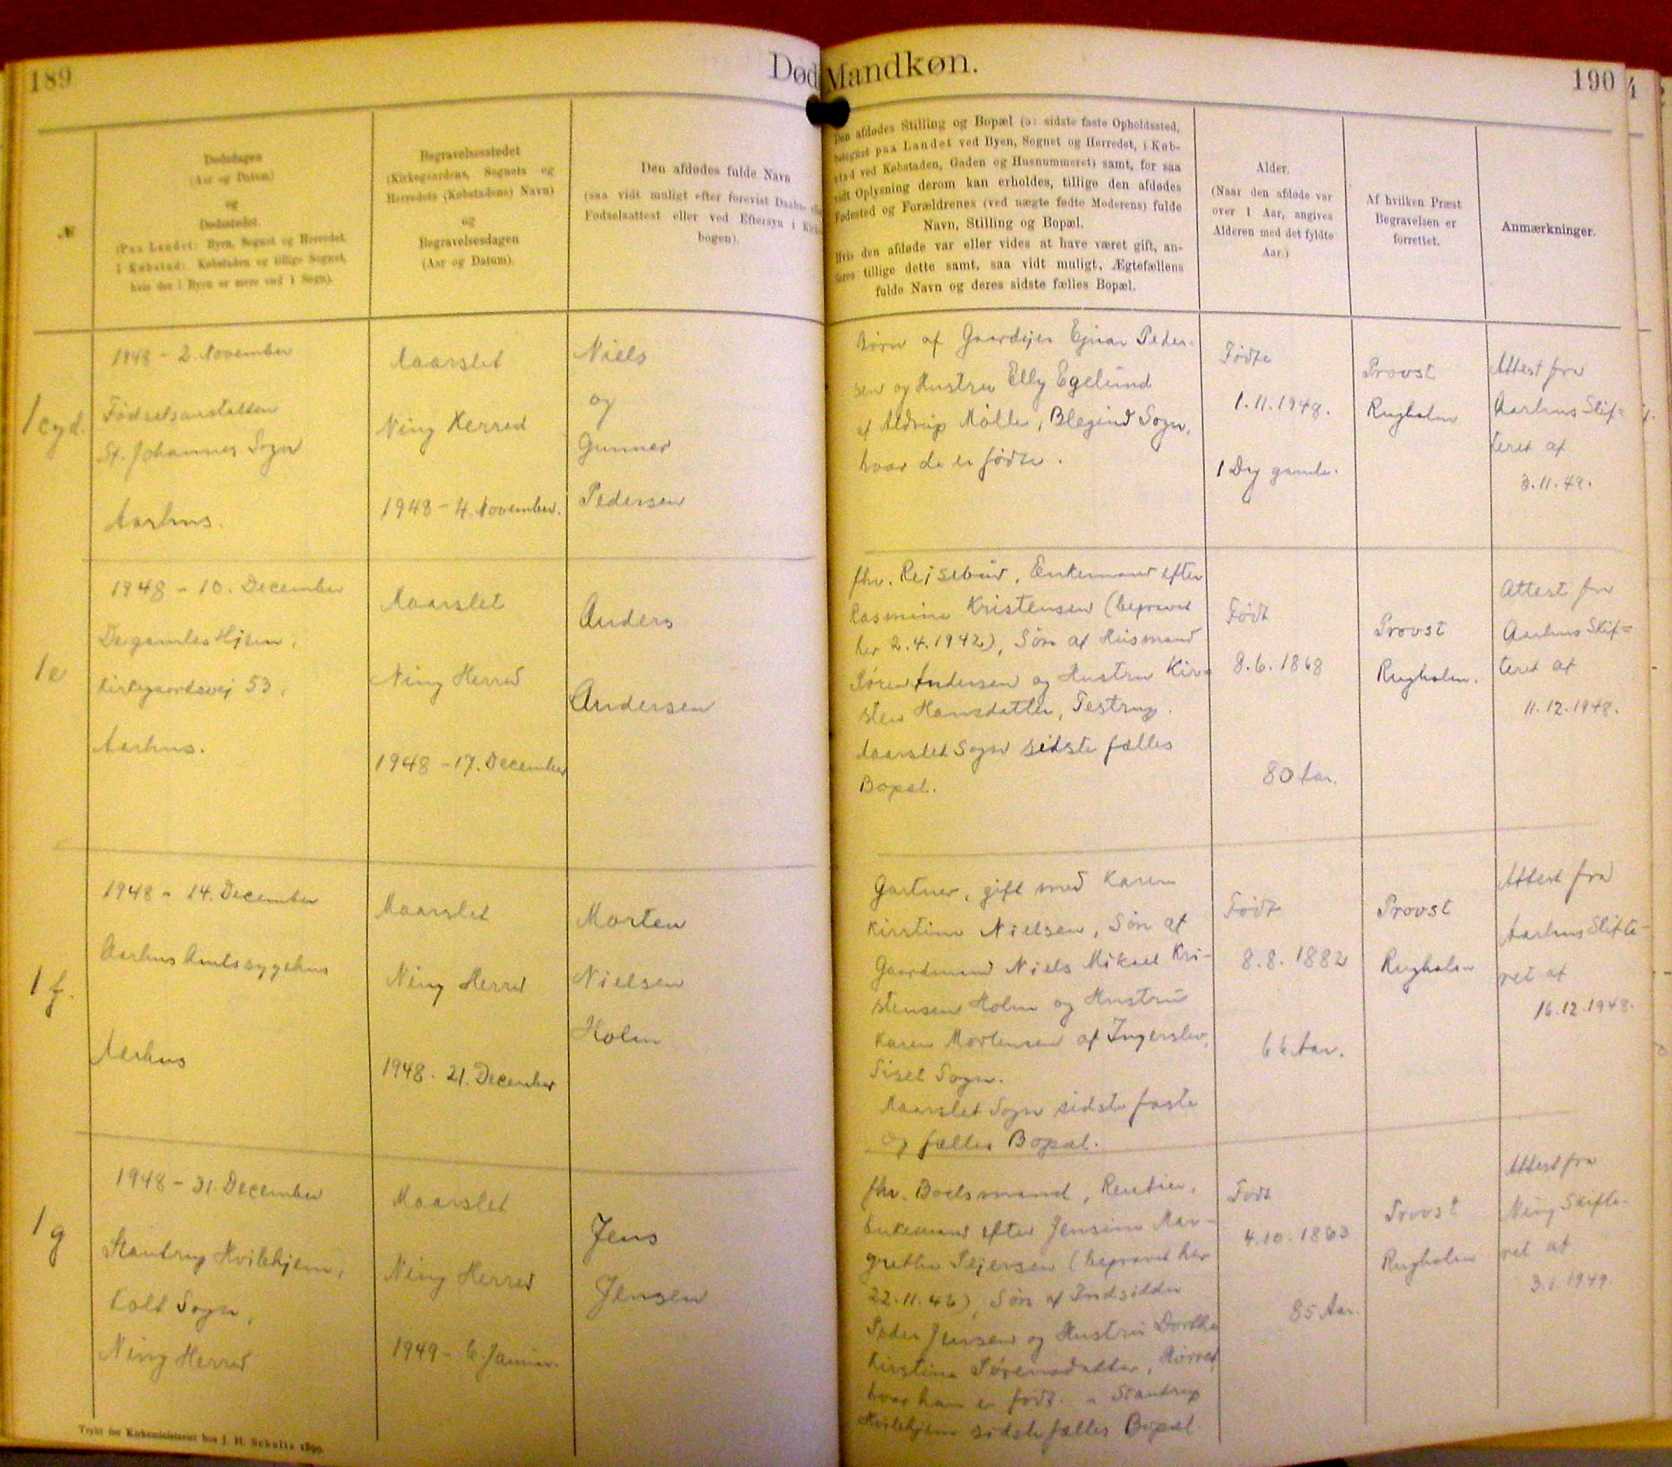 189
Død
Mandkøn.
190
№
Dødsdagen
(Aar og Datum)
og
Dødsstedet.
(Paa Landet: Byen, Sognet og Herredet,
i Købstad: Købstaden og tillige Sognet,
hvis der i Byen er mere end 1 Sogn).
Begravelsesstedet
(Kirkegaardens, Sognets og
Herredets (Købstadens) Navn)
og
Begravelsesdagen
(Aar og Datum).
Den afdødes fulde Navn
(saa vidt muligt efter forevist Daabs-
Fødselsattest eller ved Eftersyn i
bogen).
Den afdødes Stilling og Bopæl (ɔ: sidste faste Opholdssted,
betegnet paa Landet ved Byen, Sognet og Herredet, i Køb-
stad ved Købstaden, Gaden og Husnummeret) samt, for saa
vidt Oplysning derom kan erholdes, tillige den afdødes
Fødested og Forældrenes (ved uægte fødte Moderens) fulde
Navn, Stilling og Bopæl.
Hvis den afdøde var eller vides at have været gift, an-
føres tillige dette samt, saa vidt muligt, Ægtefællens
fulde Navn og deres sidste fælles Bopæl.
Alder.
(Naar den afdøde var
over 1 Aar, angives
Alderen med det fyldte
Aar.)
Af hvilken Præst
Begravelsen er
forrettet.
Anmærkninger.
1 c og d.
1948 - 2. November
Fødselsanstalten
St. Johannes Sogn
Aarhus.
Maarslet
Ning Herred
1948 - 4. November.
Niels
og
Gunner
Pedersen
Børn af Gaardejer Ejnar Peder-
sen og Hustru Elly Egelund
af Aldrup Mølle, Blegind Sogn,
hvor de er fødte.
Fødte
1.11.1948.
1 Dag gamle.
Provst
Rugholm
Attest fra
Aarhus Skif=
teret af
3.11.48.
1 e
1948 - 10. December
De gamles Hjem,
Kirkegaardsvej 53,
Aarhus.
Maarslet
Ning Herred
1948 - 17. December
Anders
Andersen
fhv. Rejsebud, Enkemand efter
Rasmine Kristensen (begravet
her 2.4.1942), Søn af Husmand
Søren Andersen og Hustru Kir=
sten Hansdatter, Testrup.
Maarslet Sogn sidste fælles
Bopæl.
Født
8.6.1868
80 Aar.
Provst
Rugholm.
Attest fra
Aarhus Skif=
teret af
11.12.1948.
1 f.
1948 - 14. December
Aarhus Amtssygehus
Aarhus
Maarslet
Ning Herred
1948 - 21. December
Morten
Nielsen
Holm
Gartner, gift med Karen
Kirstine Nielsen, Søn af
Gaardmand Niels Mikael Kri-
stensen Holm og Hustru
Karen Mortensen af Ingerslev,
Tiset Sogn.
Maarslet Sogn sidste faste
og fælles Bopæl.
Født
8.8.1882
66 Aar.
Provst
Rugholm
Attest fra
Aarhus Skifte-
ret af
16.12.1948.
1 g
1948 - 31 December
Stautrup Hvilehjem,
Kolt Sogn,
Ning Herred
Maarslet
Ning Herred
1949 - 6. Januar.
Jens
Jensen
fhv. Boelsmand, Rentier,
Enkemand efter Jensine Mar-
grethe Sejersen (begravet her
22.11.46), Søn af Indsidder
Peder Jensen og Hustru Dorthe
Kirstine Sørensdatter, Hørret,
hvor han er født. - Stautrup
Hvilehjem sidste fælles Bopæl.
Født
4.10.1863
85 Aar.
Provst
Rugholm
Attest fra
Ning Skifte-
ret af
3.1.1949.
Trykt for Kirkeministeriet hos J. H. Schultz